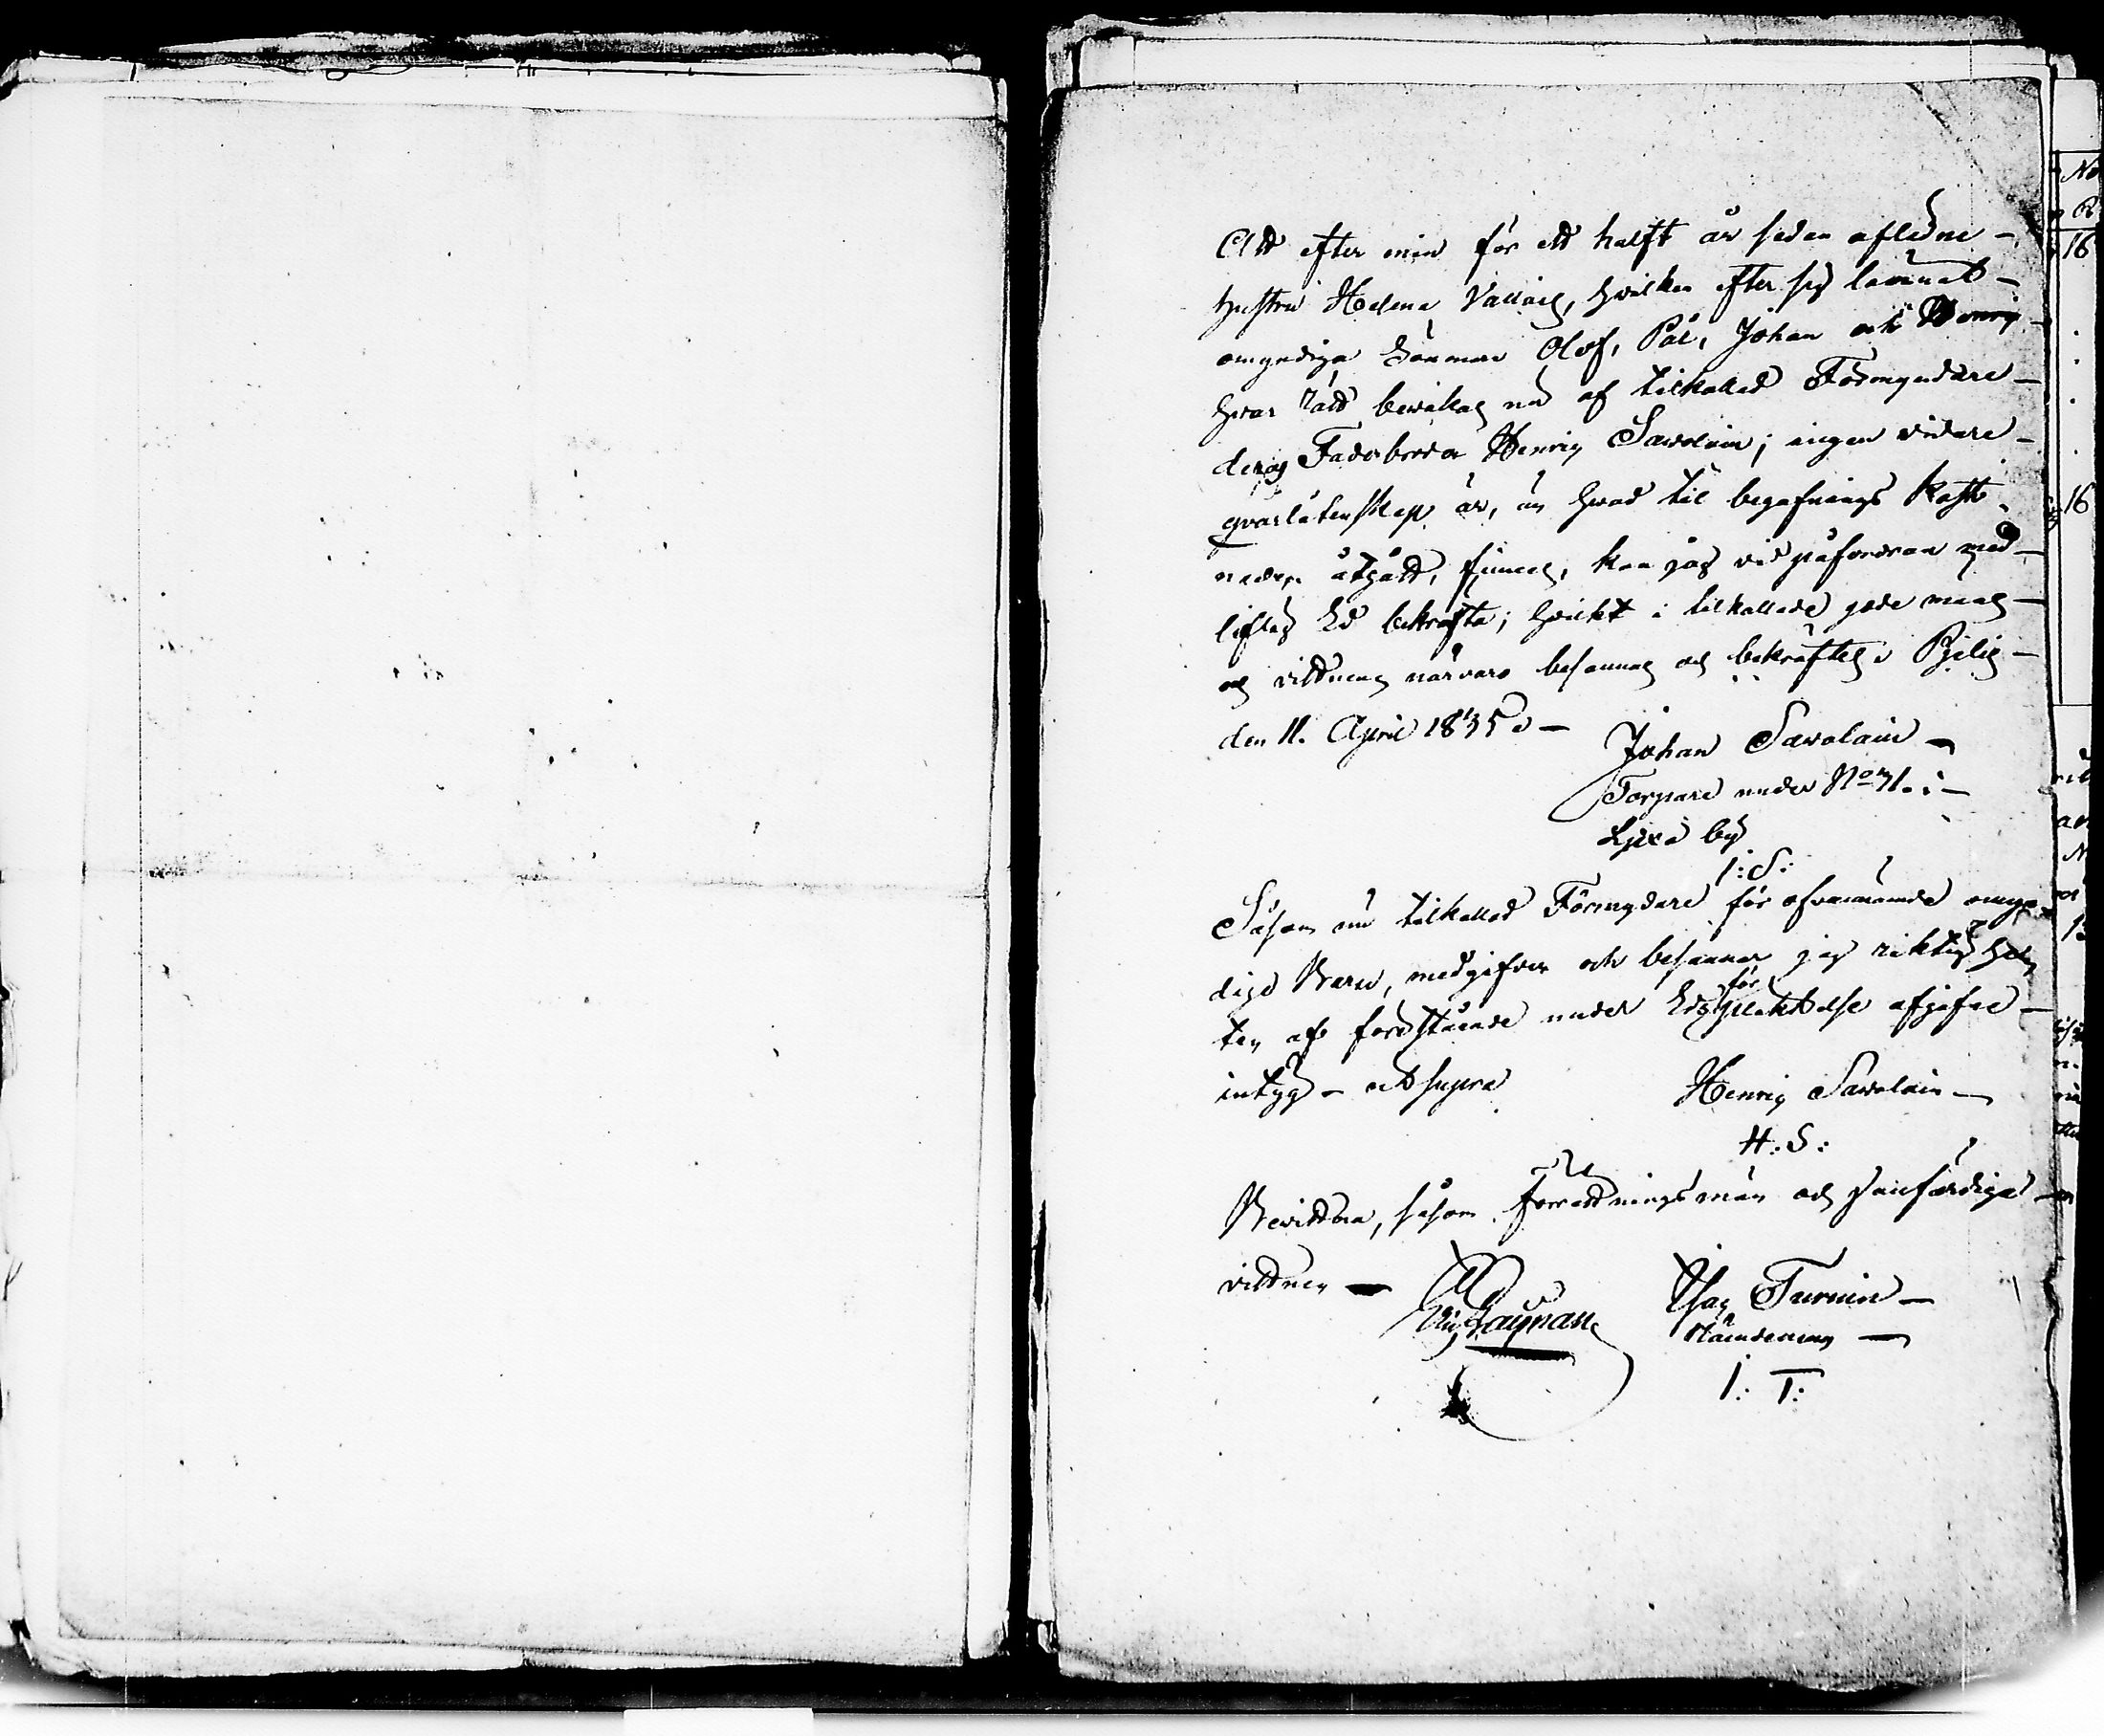 Att efter min för ett halft år sedan aflidne -
hustru Helena Vallais, hvilken efter sig lämnat -
omyndiga Sönnnar Olof, Pål, Johan och Henrig
hvars rätt bevakas nu af tilkallad Förmyndare -
deras Faderbroder Henrig Savolain; ingen vidare -
qvarlåtenskap är, än hvad til begrafnings kost-
naden åtgått, finnes, kan jag vid påfordran med -
liflig Ed bekräfta; hvilket i tilkallade gode mäns -
och vittnens närvaro besannas och bekräftas i Pjelis -
den 11. April 1835. -
Johan Savolain -
Torpare under No 71. i -
by
I: S:
Såsom nu tilkallad Förmydare för ofvannämde omyn-
dige Barn, medgifver och besannar jag riktighe-
ten af förestående under Eds förpliktelse afgifne -
intyg - ut supra
Henrig Savolain -
H: S:
Bevittna, såsom Förrättningsmän och
vittnen -
Turuin -
Nämndeman -
I: T:
No
R
16
16